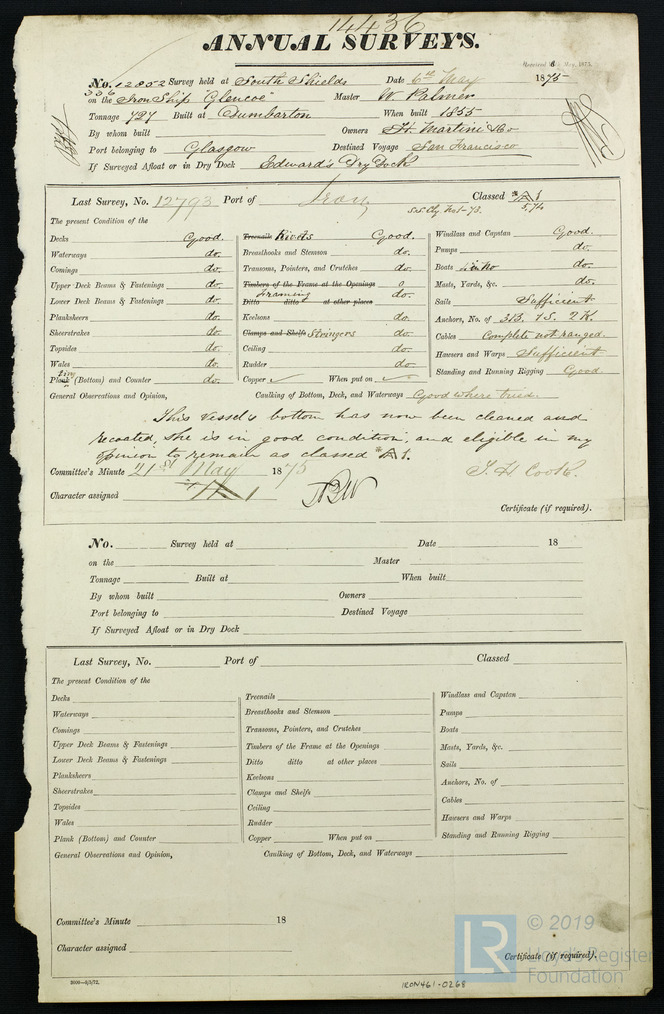 14436
ANNUAL SURVEYS.
No. 12852 Survey held at South Shields Date 6th May 1875
336 on the Iron Ship "Glencoe" Master W. Palmer
Tonnage 727 Built at Dumbarton When built 1855
By whom built Owners Martini & Co
Port belonging to Glasgow Destined Voyage San Francisco
If Surveyed Afloat or in Dry Dock Edward's Dry Dock
Last Survey, No. 12793 Port of Iron Classed A 1
5,74
The present Condition of the
Decks Good. Treenails Rivets Good. Windlass and Capstan Good.
Waterways do. Breasthooks and Stemson do. Pumps do.
Comings do. Transoms, Pointers, and Crutches do. Boats do.
Upper Deck Beams & Fastenings do. Timbers of the Frame at the Openings Masts, Yards, &c. do.
Lower Deck Beams & Fastenings do. Ditto ditto at other places Framing do. Sails Sufficient
Planksheers do. Keelsons do. Anchors, No. of 3B. 1S. 2K.
Sheerstrakes do. Clamps and Shelfs Stringers do. Cables Complete not ranged.
Topsides do. Ceiling do. Hawsers and Warps Sufficient
Wales do. Rudder do. Standing and Running Rigging Good.
Plank (Bottom) and Counter do. Copper When put on
General Observations and Opinion, Caulking of Bottom, Deck, and Waterways Good where tried.
This vessel's bottom has now been cleaned and
recoated, she is in good condition, and eligible in my
opinion to remain as classed A 1.
Committee's Minute 21st May 1875 T. H. Cook.
Character assigned A 1
Certificate (if required).
No. Survey held at Date 18
on the Master
Tonnage Built at When built
By whom built Owners
Port belonging to Destined Voyage
If Surveyed Afloat or in Dry Dock
Last Survey, No. Port of Classed
The present Condition of the
Decks Treenails Windlass and Capstan
Waterways Breasthooks and Stemson Pumps
Comings Transoms, Pointers, and Crutches Boats
Upper Deck Beams & Fastenings Timbers of the Frame at the Openings Masts, Yards, &c.
Lower Deck Beams & Fastenings Ditto ditto at other places Sails
Planksheers Keelsons Anchors, No. of
Sheerstrakes Clamps and Shelfs Cables
Topsides Ceiling Hawsers and Warps
Wales Rudder Standing and Running Rigging
Plank (Bottom) and Counter Copper When put on
General Observations and Opinion, Caulking of Bottom, Deck, and Waterways
Committee's Minute 18
Character assigned
Certificate (if required).
IRON461-0268
LR © 2019
Lloyd's Register
Foundation